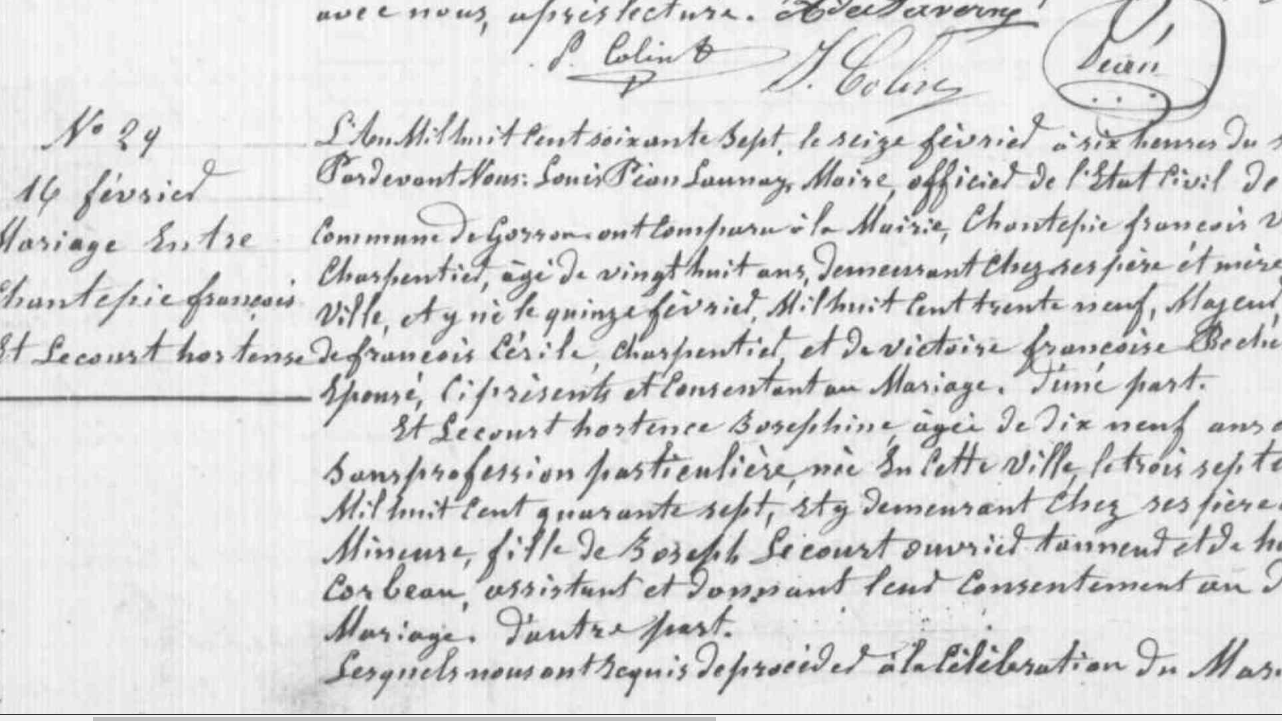 avec nous, après lecture.
P. Colin
J. Colin
Péan
N° 29
16 février
Mariage Entre
Chantepie françois
Et Lecourt hortense
L'An Mil huit Cent soixante Sept, le seize février à six heures du
Pardevant Nous: Louis Péan Launay, Maire, officier de l'Etat Civil de
Commune de Gorron ont Comparu à la Mairie, Chantepie françois
Charpentier, âgé de vingt huit ans, demeurant Chez ses père et mère
Ville, et y né le quinze février, Mil huit Cent trente neuf, Majeur
de françois Cérile, Charpentier, et de victoire françoise
Epouse, Ci présents et Consentant au Mariage. D'une part.
Et Lecourt hortence Josephine, âgée de dix neuf ans
Sans profession particulière, née En Cette Ville, le trois
Mil huit Cent quarante sept, Et y demeurant Chez ses père
Mineure, fille de Joseph Lecourt ouvrier tanneur et de
Corbeau, assistant et donnant leur Consentement au
Mariage. D'autre part.
Lesquels nous ont Requis de procéder à la Célébration du